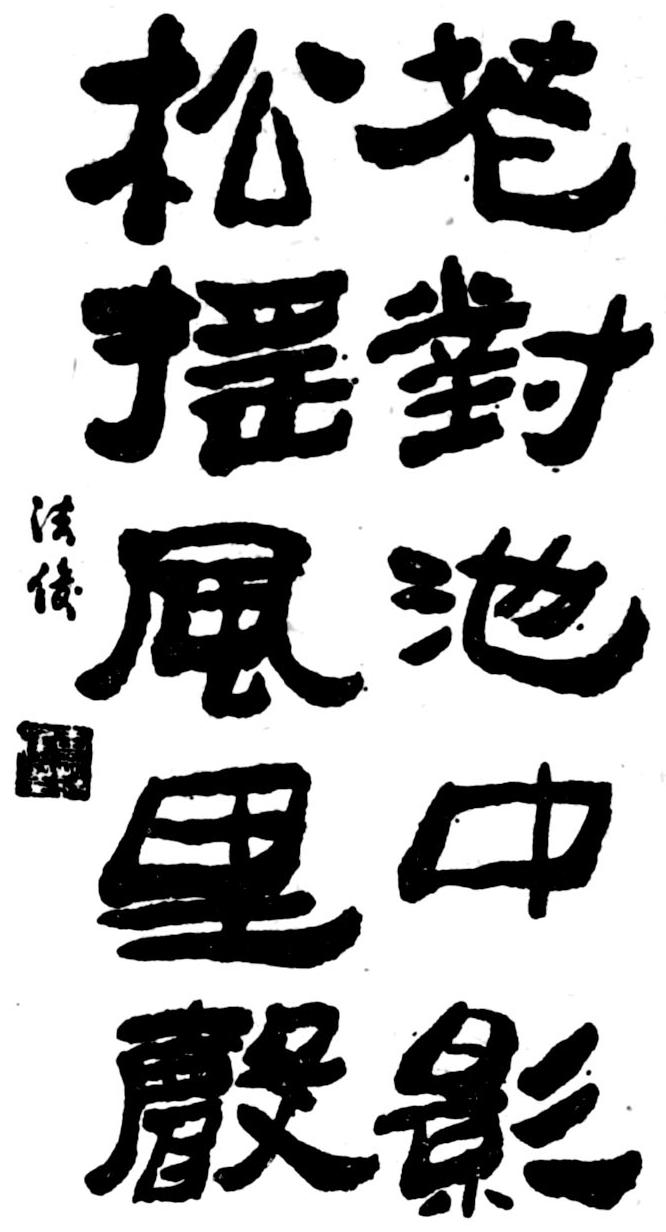 花對池中影
松摇風里聲
法俊